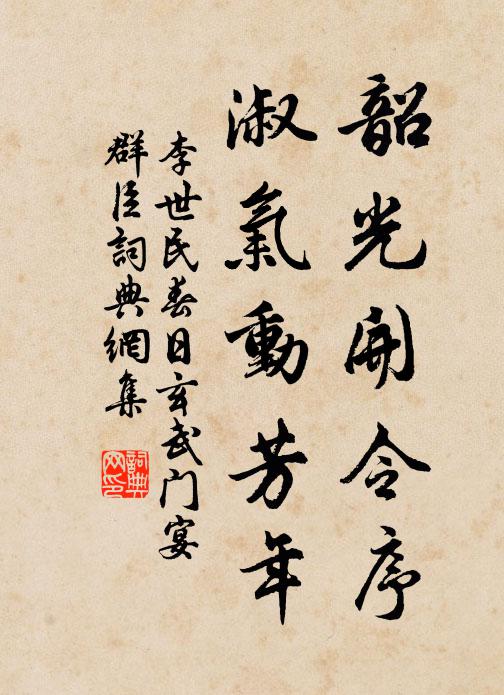 韶光開令序
淑氣動芳年
李世民春日玄武门宴
群臣詞典網集
詞典
网印